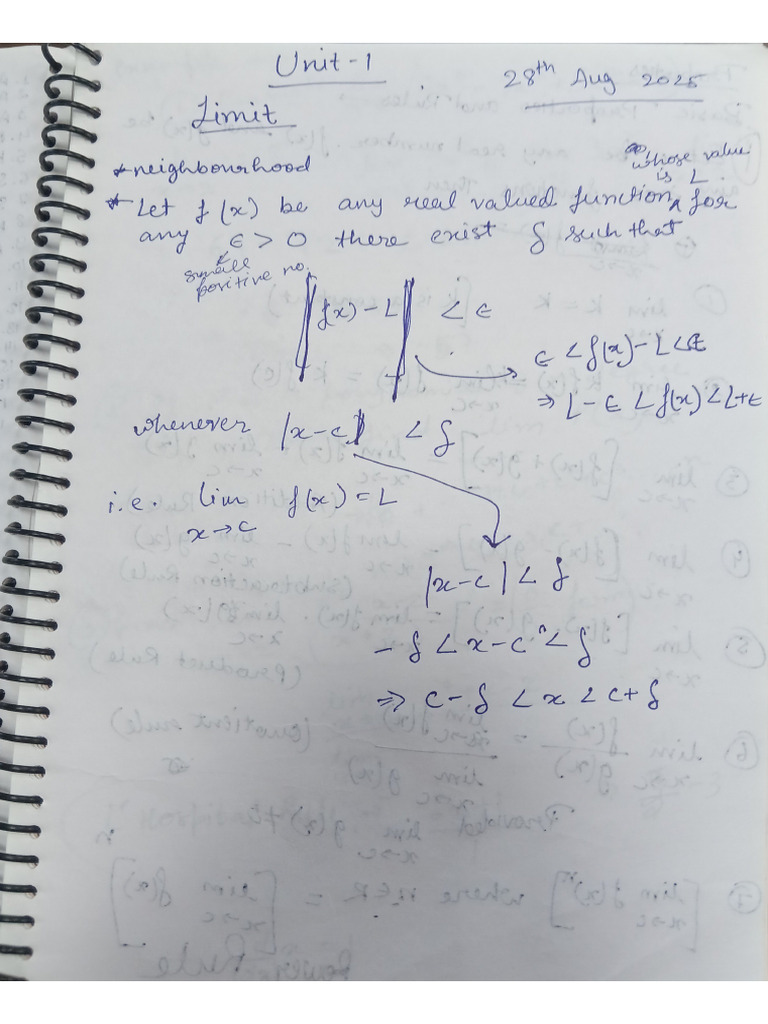 Unit-1
28th Aug 2025
Limit
* neighbourhood
whose value
is L.
* Let f(x) be any real valued function ^ for
any ε > 0 there exist δ such that
small
positive no.
|f(x) - L| < ε
ε < f(x) - L < ε
⇒ L - ε < f(x) < L + ε
whenever |x - c| < δ
i.e. lim f(x) = L
x → c
|x - c| < δ
- δ < x - c < δ
⇒ c - δ < x < c + δ